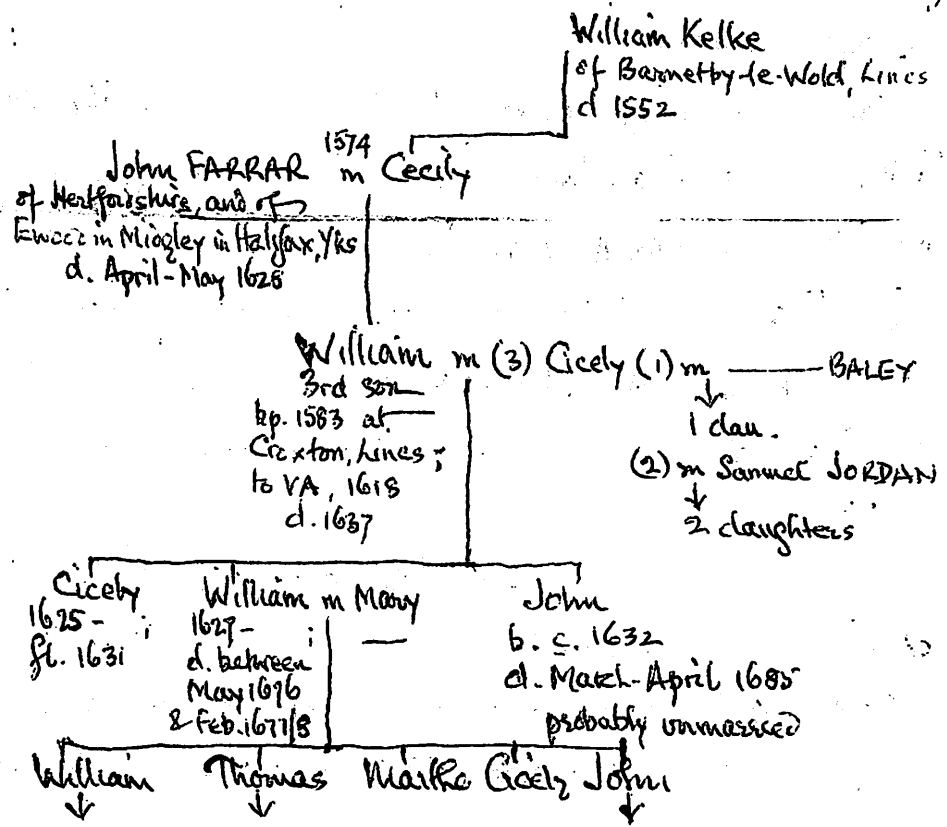 William Kelke
of Barnetby-le-Wold, Lincs
d 1552
1574
John FARRAR m Cecily
of Hertfordshire, and of
Ewood in Midgley in Halifax, Yks
d. April-May 1628
William m (3) Cicely (1) m BALEY
3rd son
bp. 1583 at
Croxton, Lincs;
to VA, 1618
d. 1637
1 dau.
(2) m Samuel JORDAN
2 daughters
Cicely
1625- ;
fl. 1631
William m Mary
1627- ;
d. between
May 1676
& Feb. 1677/8
John
b. c. 1632
d. March-April 1685
probably unmarried
William Thomas Martha Cicely John